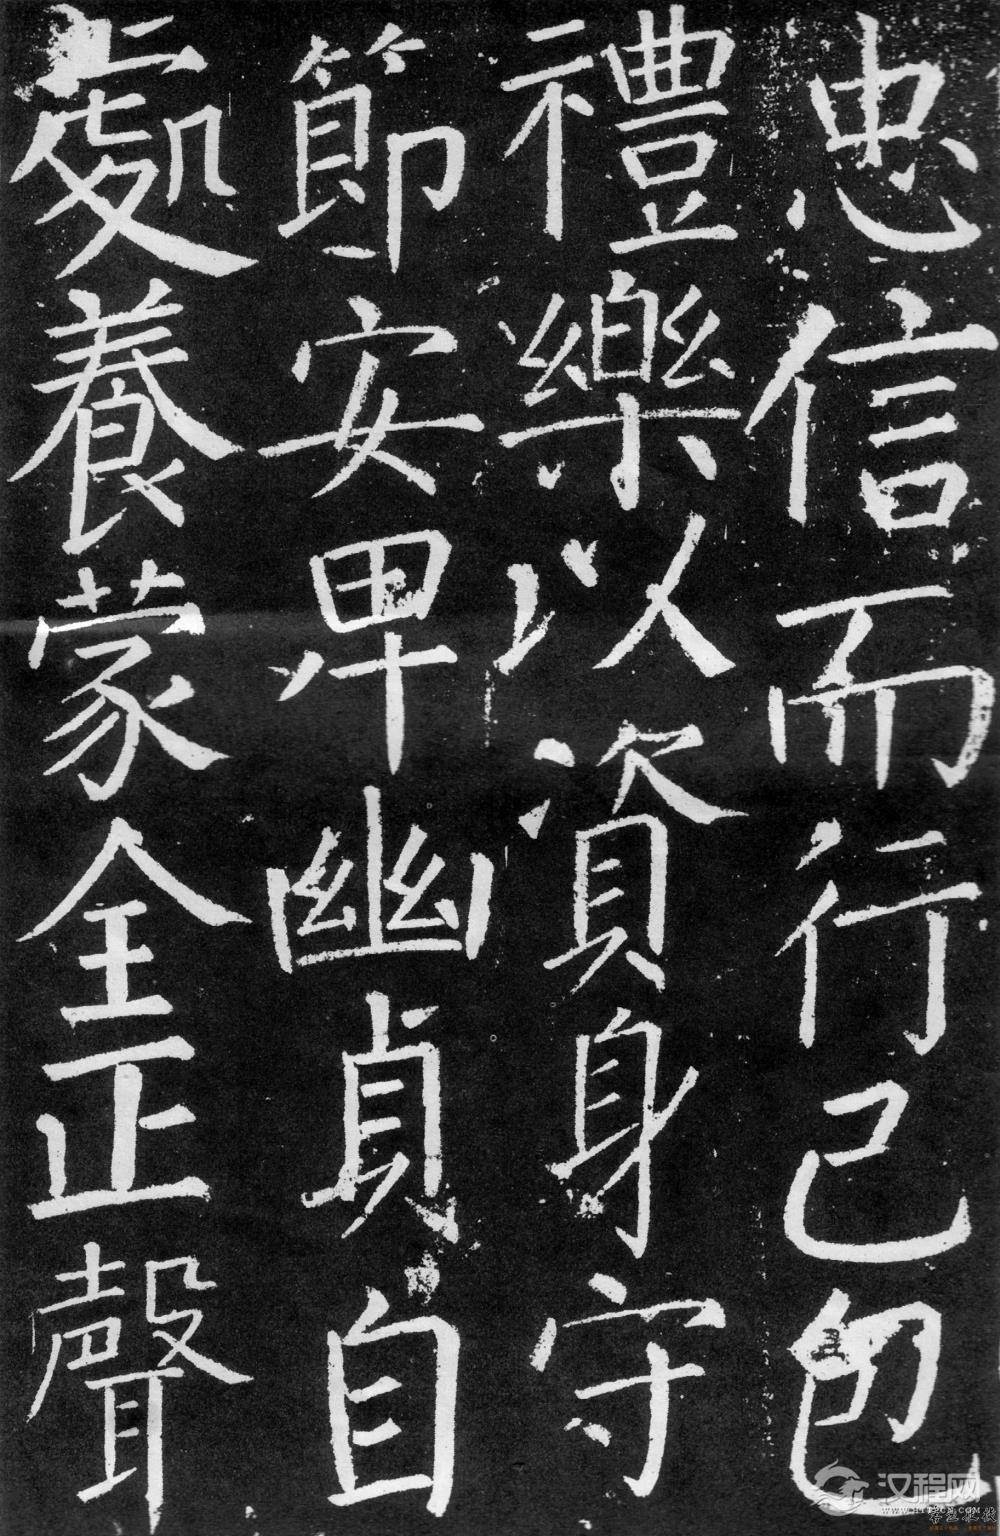 忠信而行己包
禮樂以資身守
節安卑幽貞自
處養蒙全正聲
汉程网
WWW.HTTPCN.COM